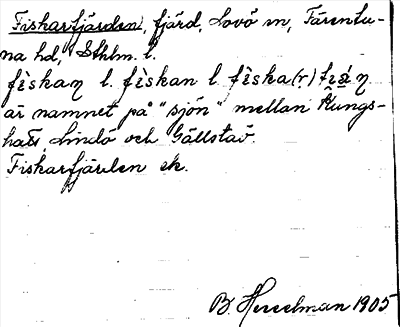 Fiskarfjärden, fjärd, Lovö sn, Färentu-
na hd, Sthlm. l.
fìskaɳ l. fìskan l fìska(r)
är namnet på "sjön" mellan Kungs-
hatt, Lindö och Gällstaö.
Fiskarfjärden ek.
B. Hesselman 1905